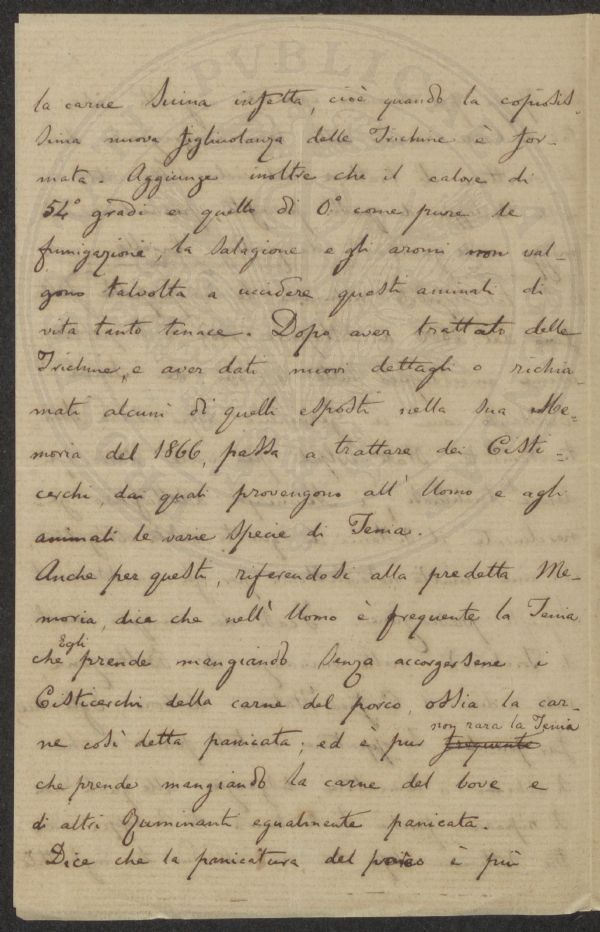 la carne suina infetta, cioè quando la copiosis-
sima nuova figliuolanza delle Trichine è for-
mata. Aggiunge inoltre che il calore di
54° gradi e quello di 0.° come pure le
fumigazione, la salagione e gli aromi non val-
gono talvolta a uccidere questi animali di
vita tanto tenace. Dopo aver trattato delle
Trichine, e aver dati nuovi dettagli o richia-
mati alcuni di quelli esposti nella sua Me-
moria del 1866, passa a trattare dei Cisti-
cerchi, dai quali provengono all'Uomo e agli
animali le varie specie di Tenia.
Anche per questi, riferendosi alla predetta Me-
moria, dice che nell'Uomo è frequente la Tenia
Egli
che prende mangiando senza accorgersene i
Cisticerchi della carne del porco, ossia la car-
non rara la Tenia
ne così detta panicata; ed è pur frequente
che prende mangiando la carne del bove e
di altri Ruminanti egualmente panicata.
Dice che la panicatura del porco è più